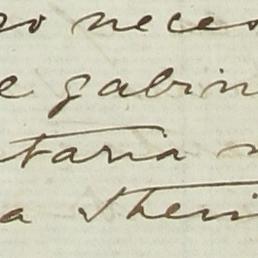 ro neces
e gabin
taria n
a Theri